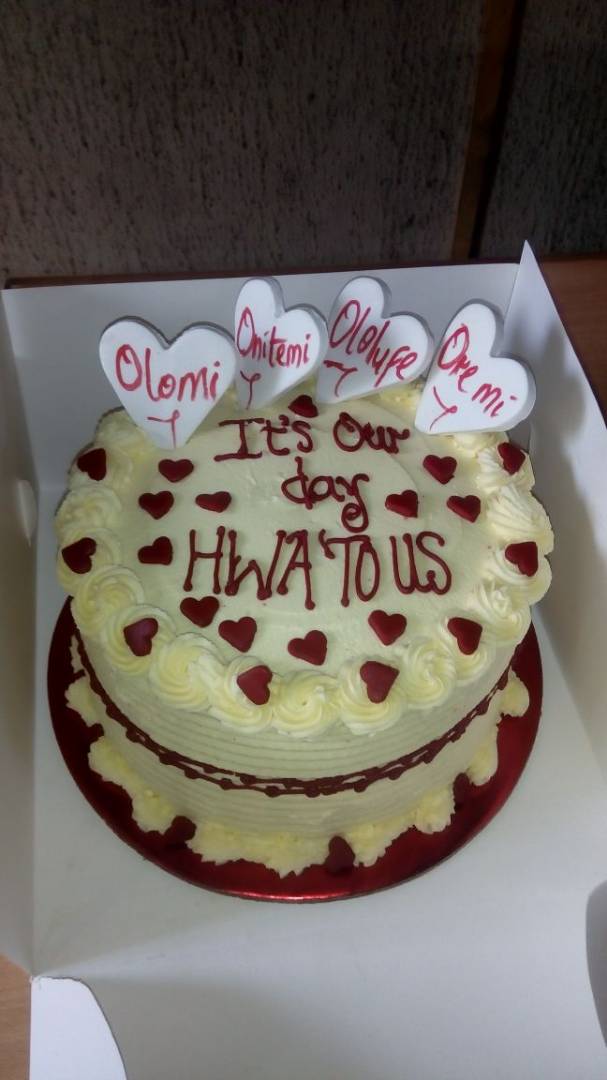 Olomi
Onitemi
Ololufe
Ore mi
It's Our
day
HWA'TO US